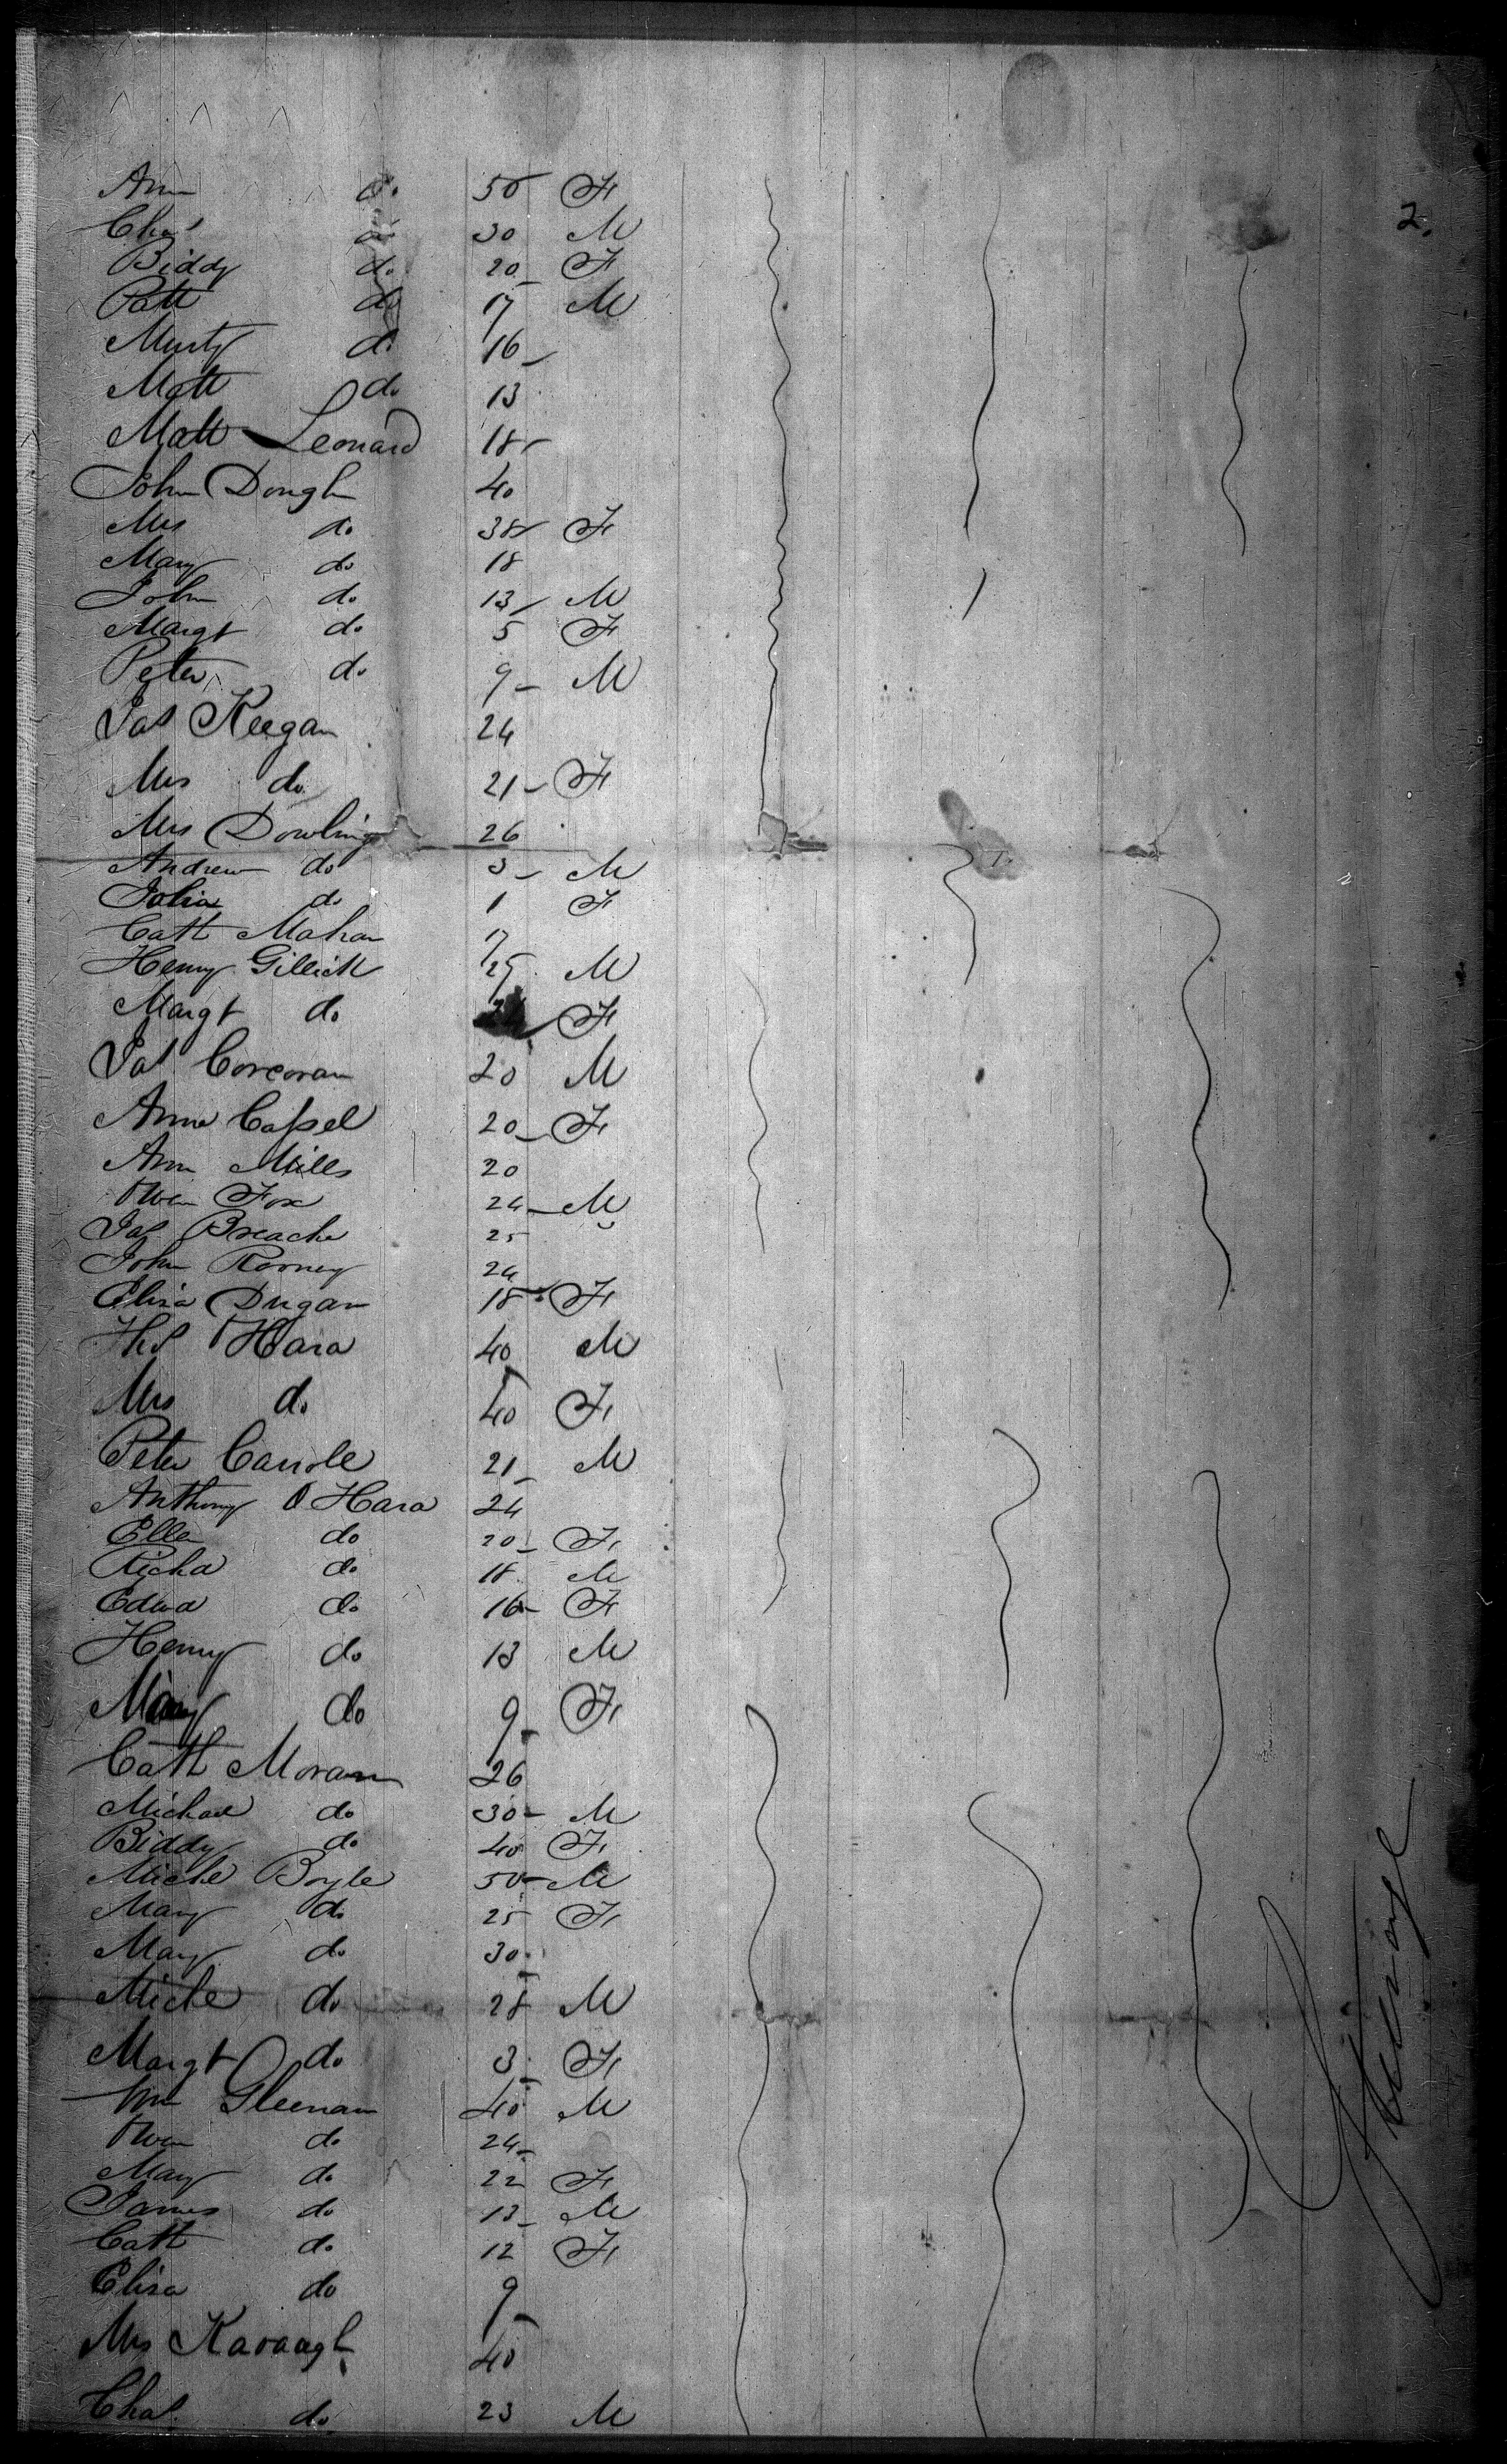 2.
Ann do 50 F
Chas do 30 M
Biddy do 20 F
Patt do 17 M
Murty do 16
Matt do 13
Matt Leonard 18
John Dongh 40
Mrs do 38 F
Mary do 18
John do 13 M
Margt do 5 F
Peter do 9 M
Jas Keegan 24
Mrs do 21 F
Mrs Dowling 26
Andrew do 3 M
Julia do 1 F
Cath Mahan 17
Henry Gillick 25 M
Margt do F
Jas Corcoran 20 M
Anne Cassel 20 F
Ann Mills 20
Owen Fox 24 M
Jas Breache 25
John Rooney 24
Eliza Dugan 18 F
Ths O Hara 40 M
Mrs do 40 F
Peter Carrole 21 M
Anthony O Hara 24
Ellen do 20 F
Richd do 18 M
Edwd do 16 F
Henry do 13 M
Mary do 9 F
Cath Moran 26
Michael do 30 M
Biddy do 40 F
Michl Boyle 50 M
Mary do 25 F
Mary do 30
Michl do 28 M
Margt do 3 F
Wm Gleenan 40 M
Owen do 24
Mary do 22 F
James do 13 M
Cath do 12 F
Eliza do 9
Mrs Kavaagh 40
Chas do 23 M